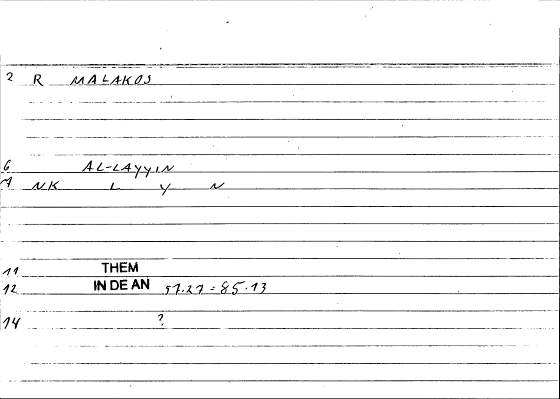 2 R MALAKOS
6 AL-LAYYIN
7 NK L Y N
11 THEM
12 IN DE AN 57.27 = 85.13
14 ?